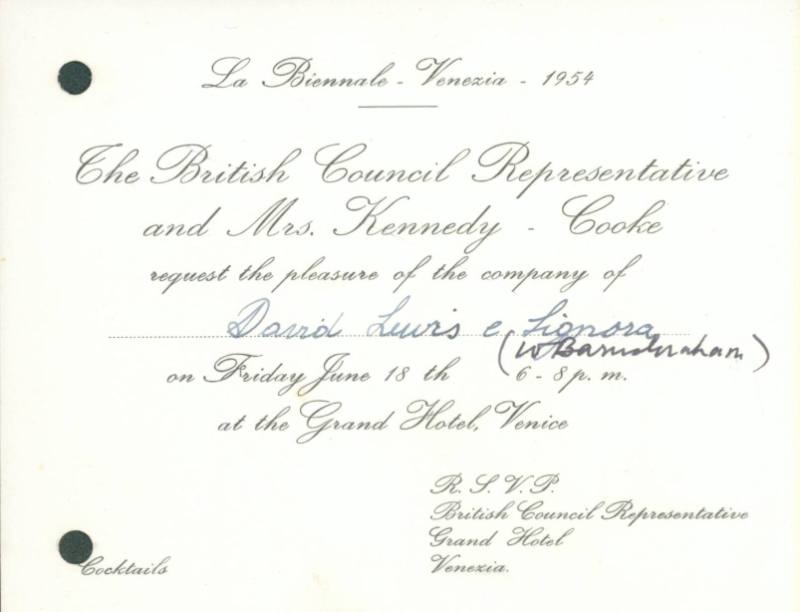 La Biennale - Venezia - 1954
The British Council Representative
and Mrs. Kennedy - Cooke
request the pleasure of the company of
David Lewis e Signora
(W Barns-Graham)
on Friday June 18 th 6 - 8 p. m.
at the Grand Hotel, Venice
R. S. V. P.
British Council Representative
Grand Hotel
Venezia.
Cocktails